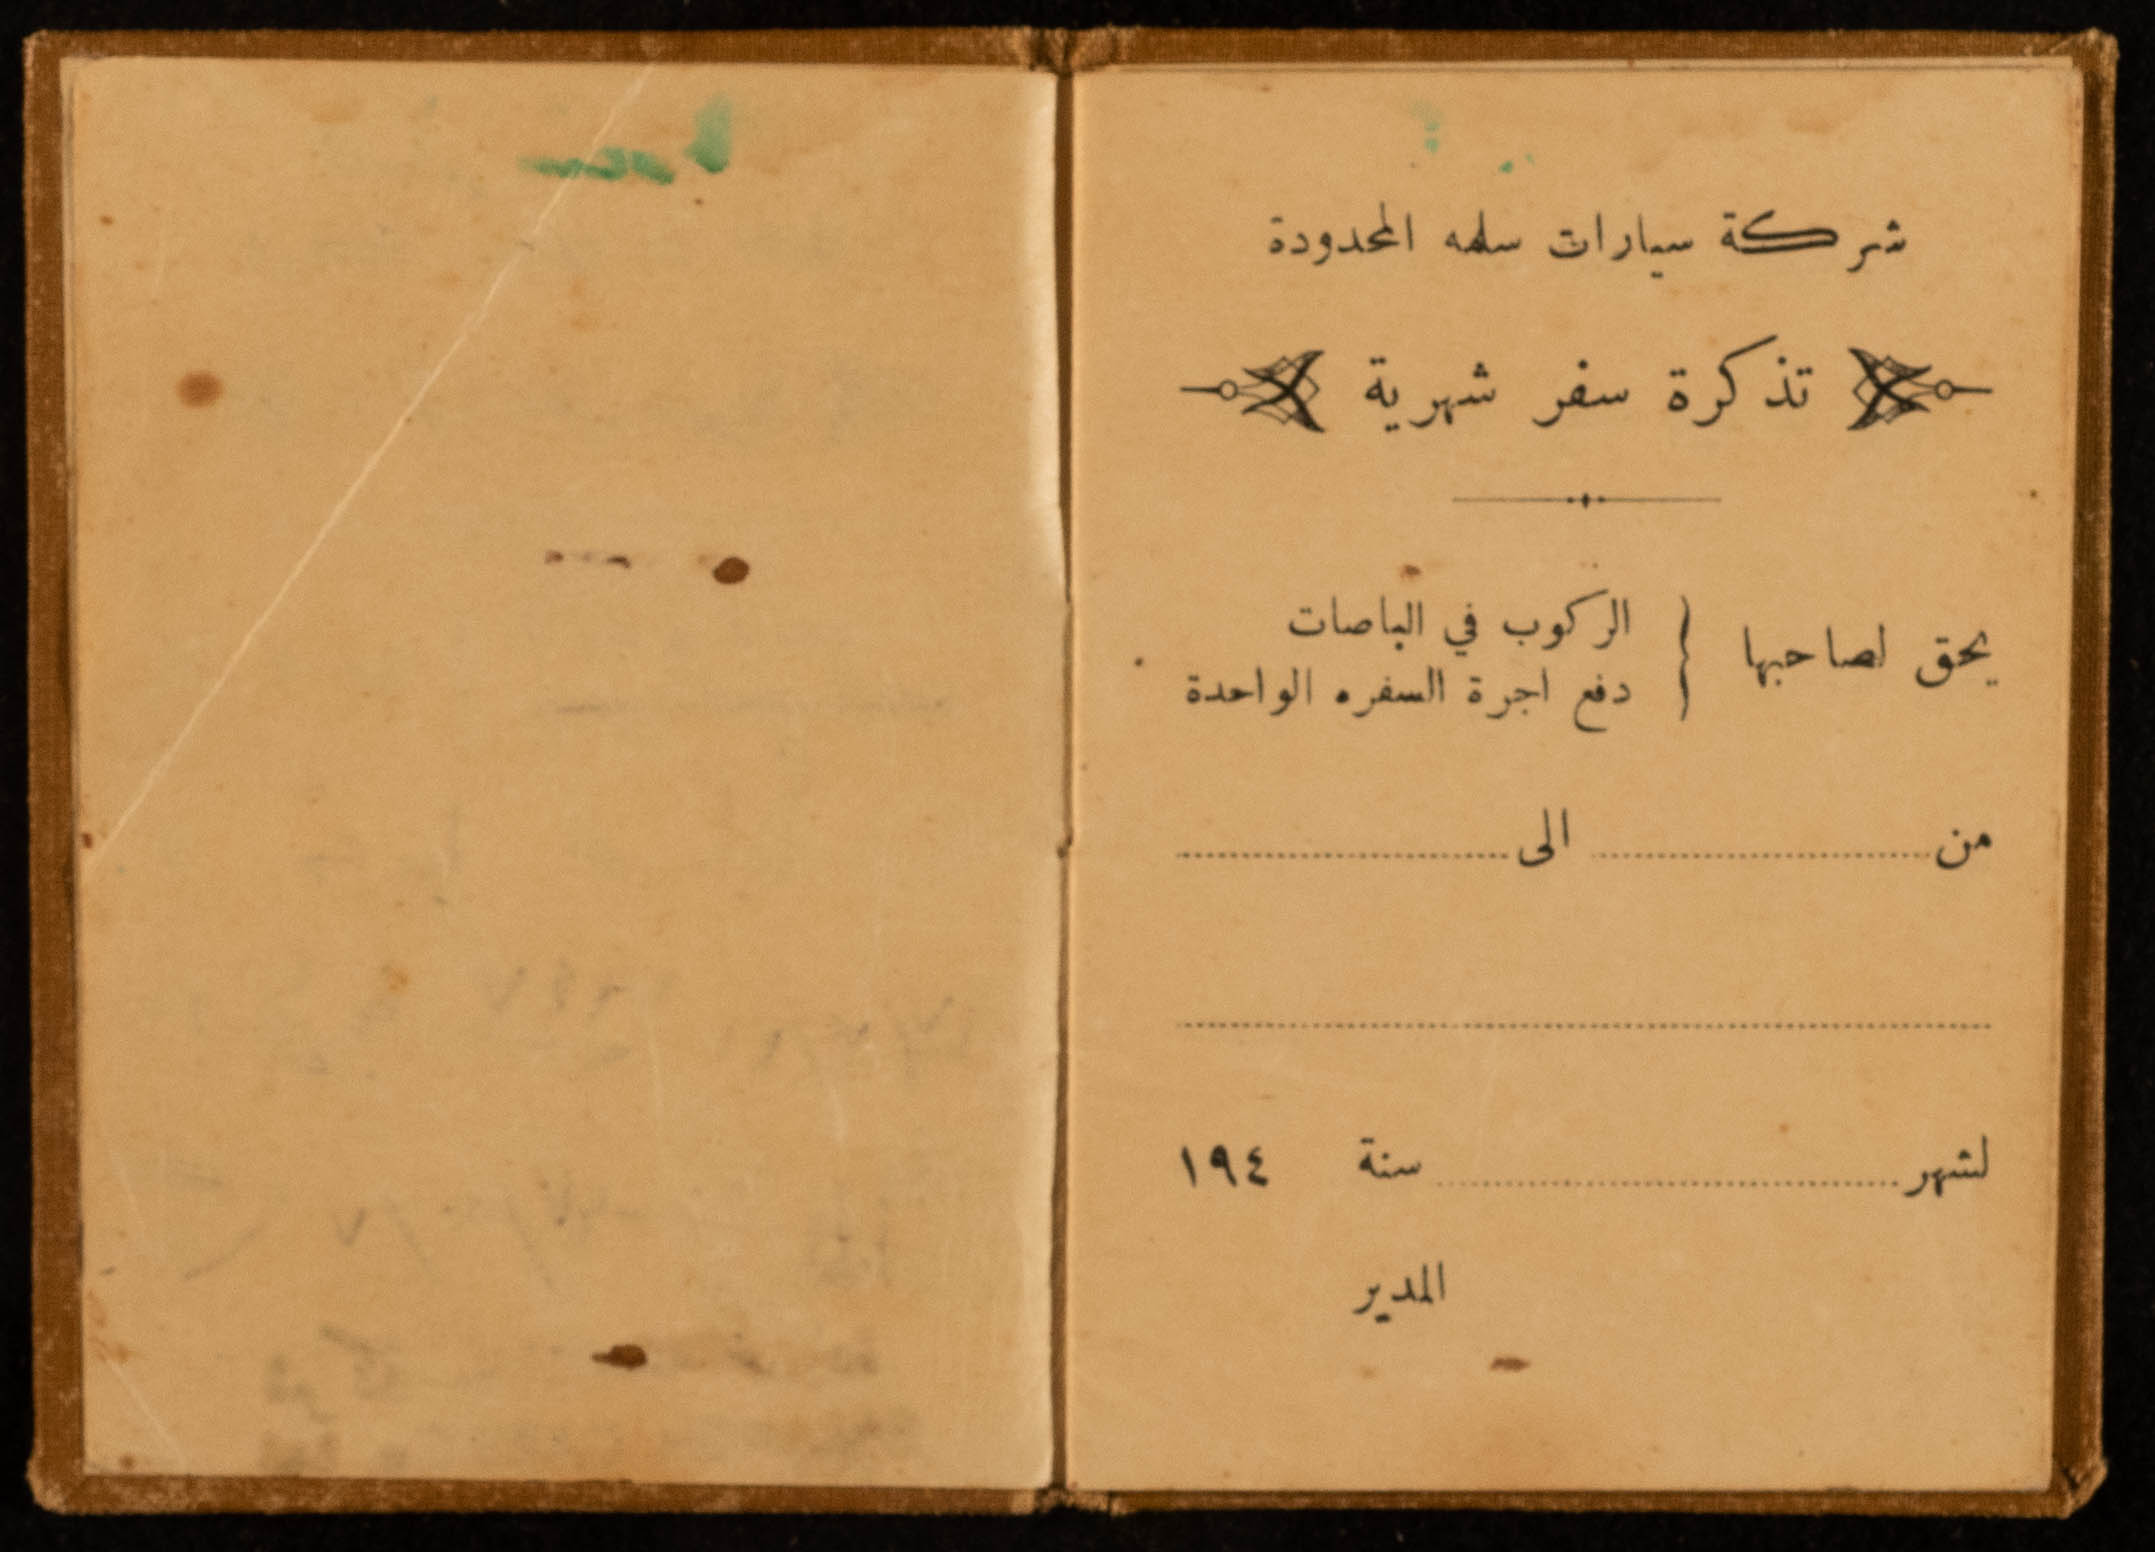 شركة سيارات سلمه المحدودة
تذكرة سفر شهرية
يحق لصاحبها { الركوب في الباصات
دفع اجرة السفره الواحدة
من ........................ الى ........................
........................................................
لشهر ........................ سنة ١٩٤
المدير